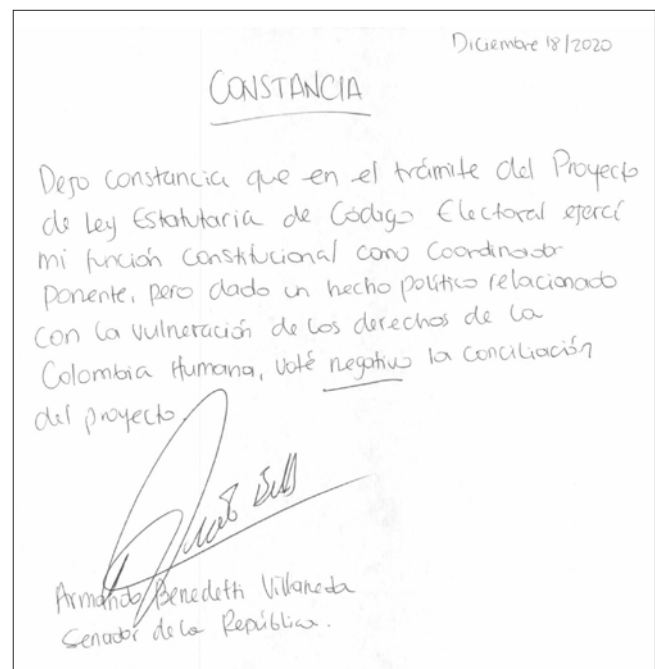 Diciembre 18/2020
CONSTANCIA
Dejo constancia que en el trámite del Proyecto
de Ley Estatutaria de Código Electoral ejercí
mi función constitucional como Coordinador
Ponente, pero dado un hecho político relacionado
con la vulneración de los derechos de la
Colombia Humana, voté negativo la conciliación
del proyecto.
Armando Benedetti Villaneda
Senador de la República.